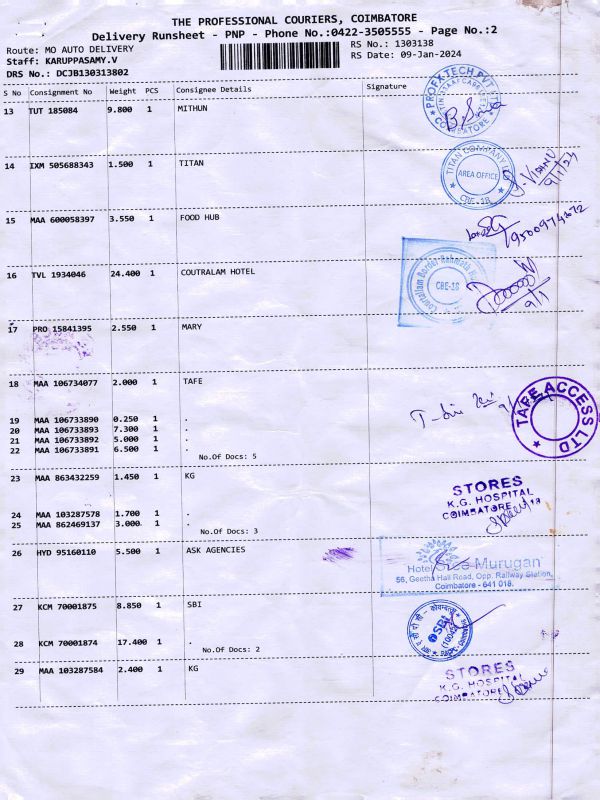 THE PROFESSIONAL COURIERS, COIMBATORE
Delivery Runsheet - PNP - Phone No.:0422-3505555 - Page No.:2
Route: MO AUTO DELIVERY RS No.: 1303138
Staff: KARUPPASAMY.V RS Date: 09-Jan-2024
DRS No.: DCJB130313802
S No Consignment No Weight PCS Consignee Details Signature
13 TUT 185084 9.800 1 MITHUN
PROFX-TECH PVT
COIMBATORE
14 IXM 505688343 1.500 1 TITAN
TITAN COMPANY LTD
AREA OFFICE
CBE-18
9/1/24
15 MAA 600058397 3.550 1 FOOD HUB
16 TVL 1934046 24.400 1 COUTRALAM HOTEL
Courtalam Border Rahmath
CBE-18
9/1
17 PRO 15841395 2.550 1 MARY
18 MAA 106734077 2.000 1 TAFE
TAFE ACCESS LTD
19 MAA 106733890 0.250 1 .
20 MAA 106733893 7.300 1 .
21 MAA 106733892 5.000 1 .
22 MAA 106733891 6.500 1 .
No.Of Docs: 5
23 MAA 863432259 1.450 1 KG
STORES
K.G. HOSPITAL
COIMBATORE 18
24 MAA 103287578 1.700 1 .
25 MAA 862469137 3.000 1 .
No.Of Docs: 3
26 HYD 95160110 5.500 1 ASK AGENCIES
Hotel Sree Murugan
56, Geetha Hall Road, Opp. Railway Station,
Coimbatore - 641 018.
27 KCM 70001875 8.850 1 SBI
SBI
28 KCM 70001874 17.400 1 .
No.Of Docs: 2
29 MAA 103287584 2.400 1 KG
STORES
K.G. HOSPITAL
COIMBATORE